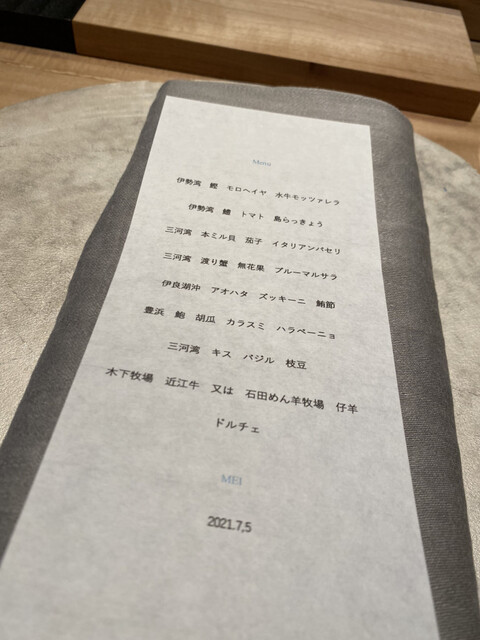 Menu
伊勢湾 鰹 モロヘイヤ 水牛モッツァレラ
伊勢湾 鱧 トマト 島らっきょう
三河湾 本ミル貝 茄子 イタリアンパセリ
三河湾 渡り蟹 無花果 ブルーマルサラ
伊良湖沖 アオハタ ズッキーニ 鮪節
豊浜 鮑 胡瓜 カラスミ ハラペーニョ
三河湾 キス バジル 枝豆
木下牧場 近江牛 又は 石田めん羊牧場 仔羊
ドルチェ
MEI
2021.7.5